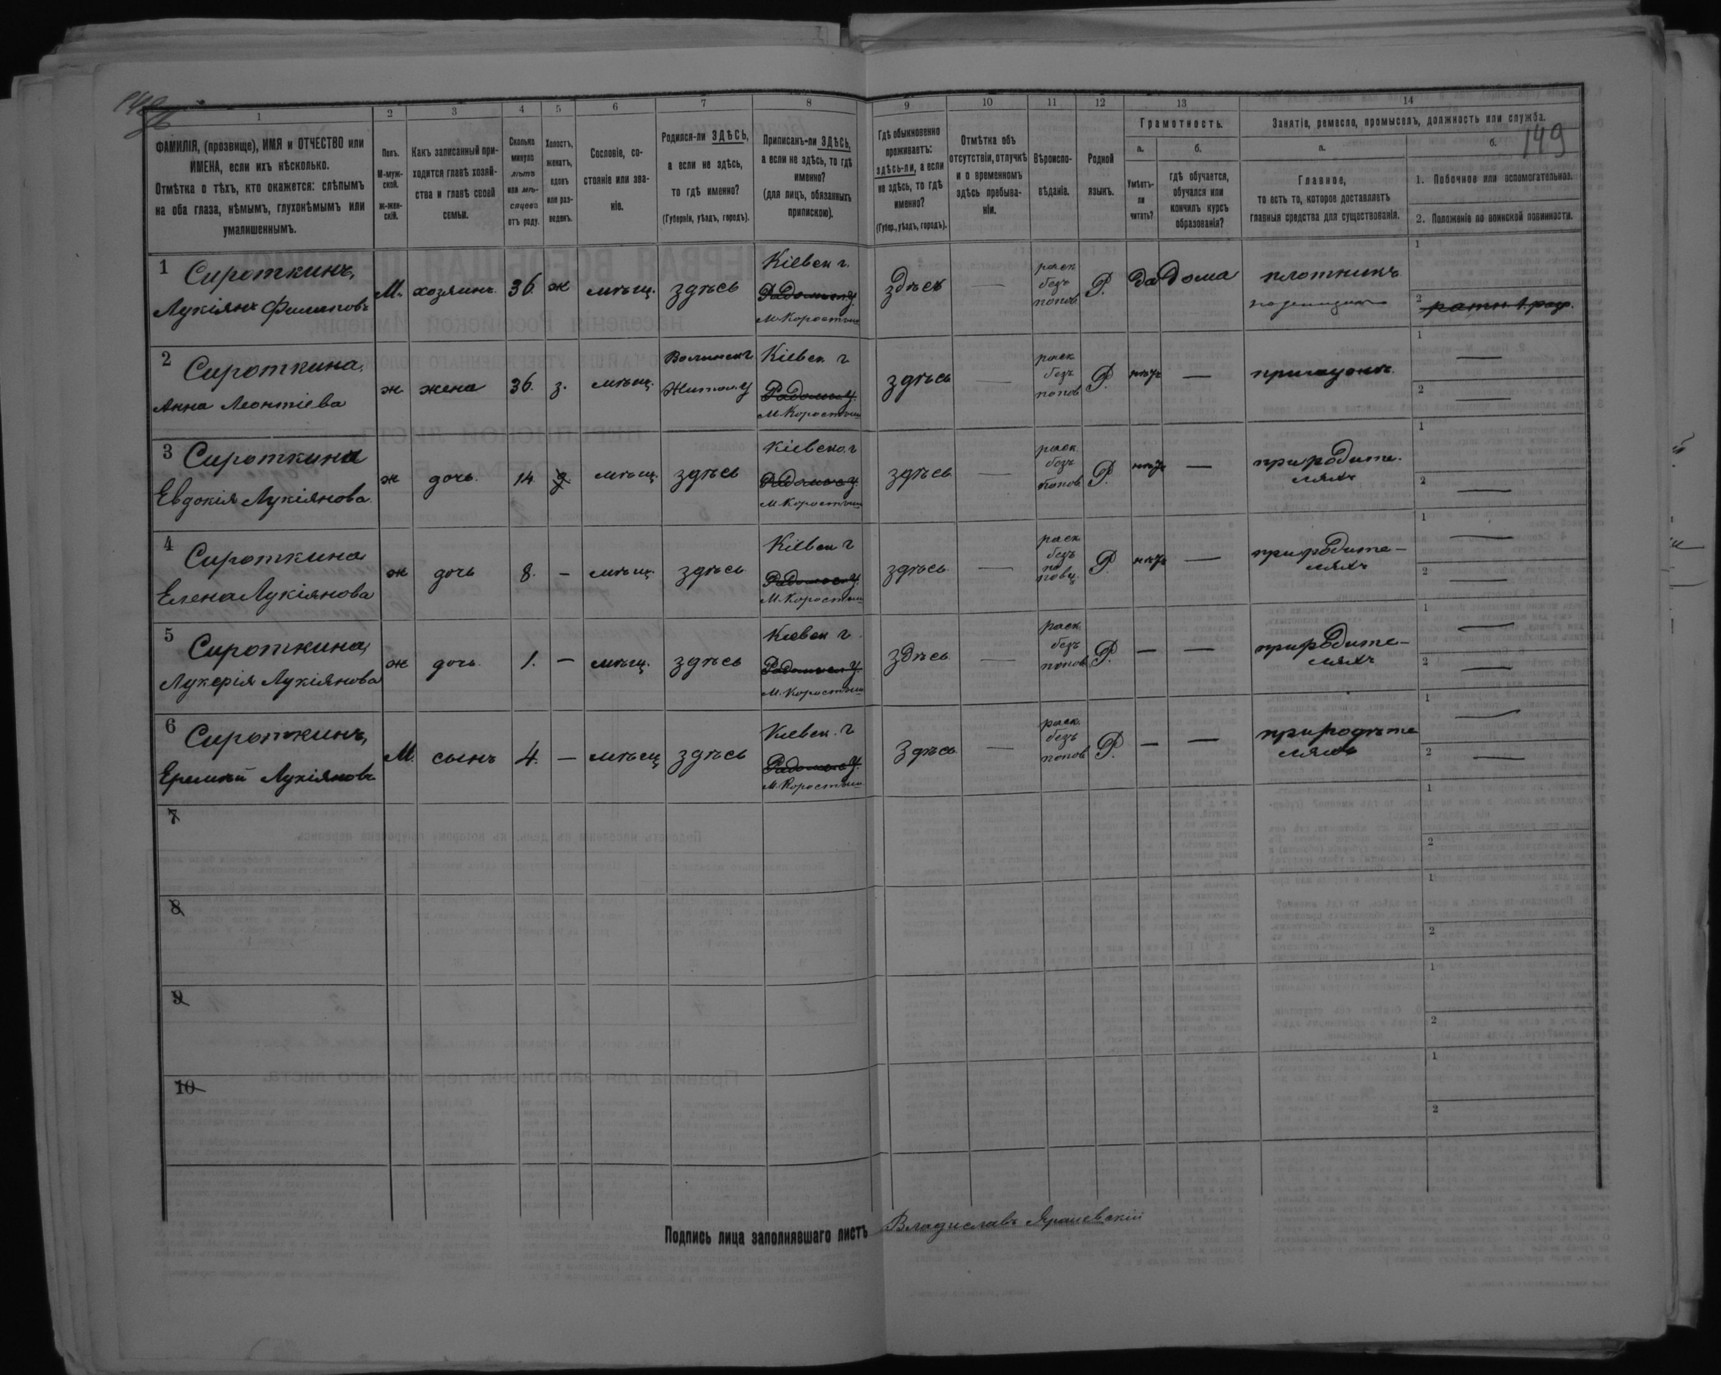 149
1 2 3 4 5 6 7 8 9 10 11 12 13 14
ФАМИЛІЯ, (прозвище), ИМЯ и ОТЧЕСТВО или
ИМЕНА, если ихъ нѣсколько.
Отмѣтка о тѣхъ, кто окажется: слѣпымъ
на оба глаза, нѣмымъ, глухонѣмымъ или
умалишеннымъ.
Полъ.
М-муж-
ской.
ж-жен-
скій.
Какъ записанный при-
ходится главѣ хозяй-
ства и главѣ своей
семьи.
Сколько
минуло
лѣтъ
или мѣ-
сяцевъ
отъ роду.
Холостъ,
женатъ,
вдовъ
или раз-
веденъ.
Сословіе, со-
стояніе или зва-
ніе.
Родился-ли ЗДѢСЬ,
а если не здѣсь,
то гдѣ именно?
(Губернія, уѣздъ, городъ).
Приписанъ-ли ЗДѢСЬ,
а если не здѣсь, то гдѣ
именно?
(для лицъ, обязанныхъ
припискою).
Гдѣ обыкновенно
проживаетъ:
здѣсь-ли, а если
не здѣсь, то гдѣ
именно?
(Губер., уѣздъ, городъ).
Отмѣтка объ
отсутствіи, отлучкѣ
и о временномъ
здѣсь пребыва-
ніи.
Вѣроиспо-
вѣданіе.
Родной
языкъ.
Грамотность.
а.
Умѣетъ-
ли
читать?
б.
гдѣ обучается,
обучался или
кончилъ курсъ
образованія?
Занятіе, ремесло, промыселъ, должность или служба.
а.
Главное,
то есть то, которое доставляетъ
главныя средства для существованія.
б.
1. Побочное или вспомогательное.
2. Положеніе по воинской повинности.
1 Сироткинъ,
Лукіянъ Филиповъ
М. хозяинъ. 36. ж мѣщ. здѣсь
Кіевск г.
Радомысл у.
М. Коростыш
здѣсь —
раск
безъ
попов
Р. да Дома плотникъ
1
2 ратн 1 раз.
2 Сироткина,
Анна Леонтіева
ж жена 36. з. мѣщ.
Волынск г
Житом. у
Кіевск г
Радомысл у.
М. Коростыш
здѣсь —
раск
безъ
попов
Р. нѣтъ — при мужѣ.
1 —
2 —
3 Сироткина
Евдокія Лукіянова
ж дочь. 14 д мѣщ. здѣсь
Кіевск. г
Радомысл у
М. Коростыш
здѣсь —
раск
безъ
попов
Р. нѣтъ — при родите-
ляхъ
1
2 —
4 Сироткина
Елена Лукіянова
ж дочь 8. — мѣщ здѣсь
Кіевск г
Радомысл у.
М. Коростыш
здѣсь —
раск
безъ
по
повщ.
Р нѣтъ — при родите-
ляхъ
1 —
2 —
5 Сироткина,
Лукерія Лукіянова
ж дочь 1. — мѣщ. здѣсь
Кіевск г.
Радомысл у.
М. Коростыш
здѣсь —
раск
безъ
попов
Р. — — при родите-
ляхъ
1 —
2 —
6 Сироткинъ,
Еремѣй Лукіяновъ
М. сынъ 4. — мѣщ здѣсь
Кіевск. г
Радомысл у.
М. Коростыш
здѣсь —
раск
безъ
попов
Р. — — при родите
ляхъ
1 —
2 —
7
1
2
8
1
2
9
1
2
10
1
2
Подпись лица заполнявшаго листъ Владиславъ Ярошевскій